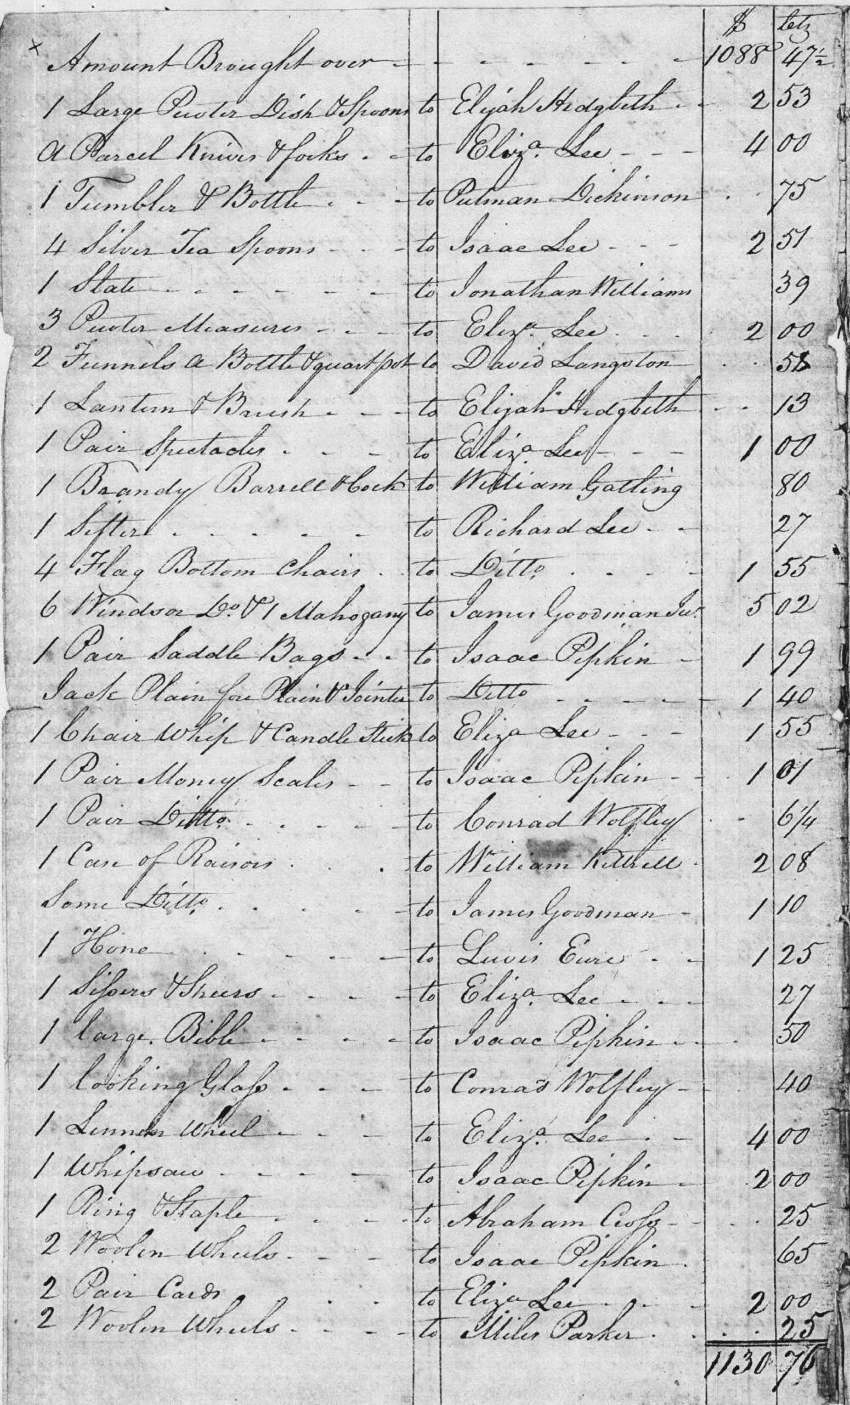 $ Cts
x Amount Brought over 1088 47½
1 Large Pewter Dish & Spoons to Elijah Hedgbeth 2 53
a Parcel Knives & forks to Eliza. Lee 4 00
1 Tumbler & Bottle to Putman Dickinson 75
4 Silver Tea Spoons to Isaac Lee 2 51
1 Slate to Jonathan Williams 39
3 Pewter Measures to Eliza. Lee 2 00
2 Funnels a Bottle & quart pot to David Langston 58
1 Lantern & Brush to Elijah Hedgbeth 13
1 Pair Spectacles to Eliza Lee 1 00
1 Brandy Barrell & Cock to William Gatling 80
1 Sifter to Richard Lee 27
4 Flag Bottom Chairs to Ditto 1 55
6 Windsor Do. & 1 Mahogany to James Goodman Junr. 5 02
1 Pair Saddle Bags to Isaac Pipkin 1 99
Jack Plain fore Plain & Jointer to Ditto 1 40
1 Chair Whip & Candle Stick to Eliza Lee 1 55
1 Pair Money Scales to Isaac Pipkin 1 01
1 Pair Ditto to Conrad Wolfley 6¼
1 Case of Raisors to William Kittrell 2 08
Some Ditto to James Goodman 1 10
1 Hone to Lewis Eure 1 25
1 Sissers & Sheers to Eliza. Lee 27
1 large Bible to Isaac Pipkin 50
1 looking Glass to Conrad Wolfley 40
1 Linnen Wheel to Eliza. Lee 4 00
1 Whipsaw to Isaac Pipkin 2 00
1 Ring & Staple to Abraham Cross 25
2 Woolen Wheels to Isaac Pipkin 65
2 Pair Cards to Eliza Lee 2 00
2 Woolen Wheels to Miles Parker 25
1130 76